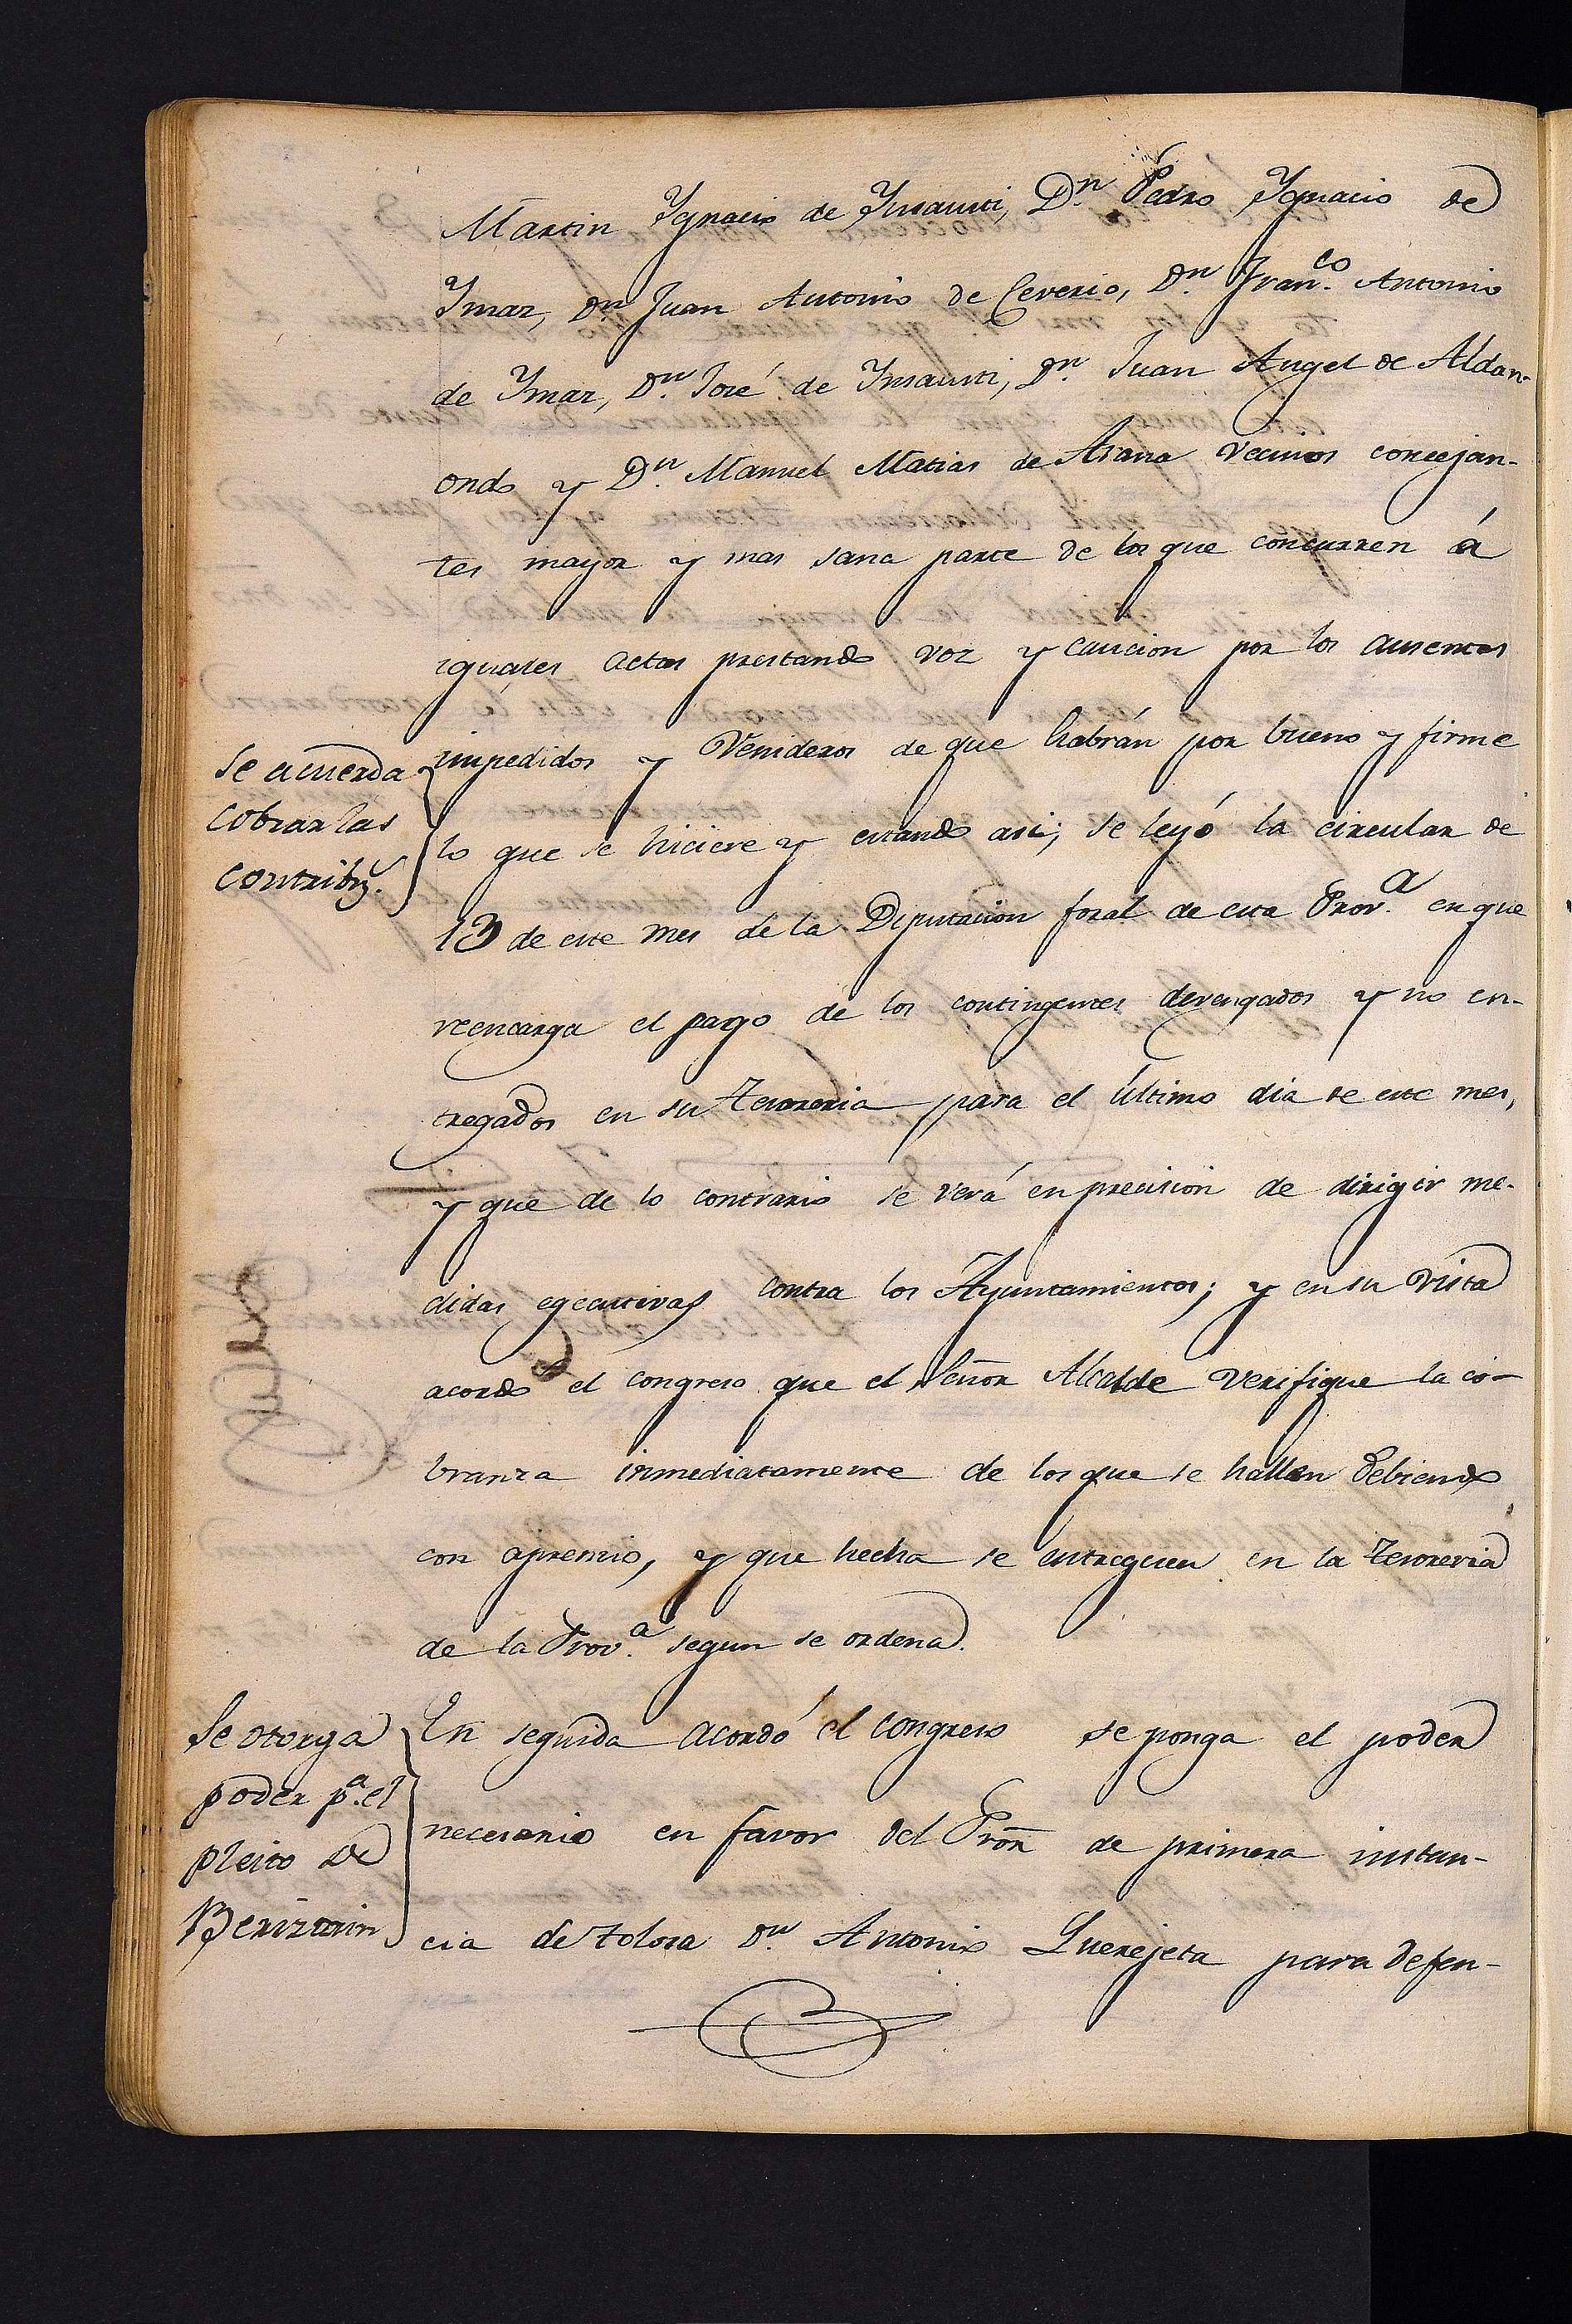 Martin Ygnacio de Ynsausti, Dn. Pedro Ygnacio de
Ymaz, Dn. Juan Antonio de Ceverio, Dn. Franco. Antonio
de Ymaz, Dn. José de Ynsausti, Dn. Juan Angel de Aldan-
ondo y Dn. Manuel Matias de Arana vecinos concejan-
tes mayor y mas sana parte de los que concurren á
iguales actos prestando voz y caucion por los ausentes
Se acuerda
cobrar las
contribs.
impedidos y Venideros de que habrán por bueno y firme
lo que se hiciere y estando asi, se leyó la circular de
13 de este mes de la Diputacion foral de esta Prova. en que
reencarga el pago de los contingentes devengados y no en-
tregados en su tesoreria para el último dia de este mes,
y que de lo contrario se verá en precision de dirigir me-
didas egecutivas contra los Ayuntamientos; y en su vista
acordo el congreso que el Señor Alcalde verifique la co-
branza inmediatamente de los que se hallan debiendo
con apremio, y que hecha se entreguen en la tesoreria
de la Prova. segun se ordena.
Se otorga
poder pa. el
pleito de
Berizarin
En seguida acordó el congreso se ponga el poder
necesario en favor del Pror̃ de primera instan-
cia de tolosa Dn. Antonio Querejeta para defen-